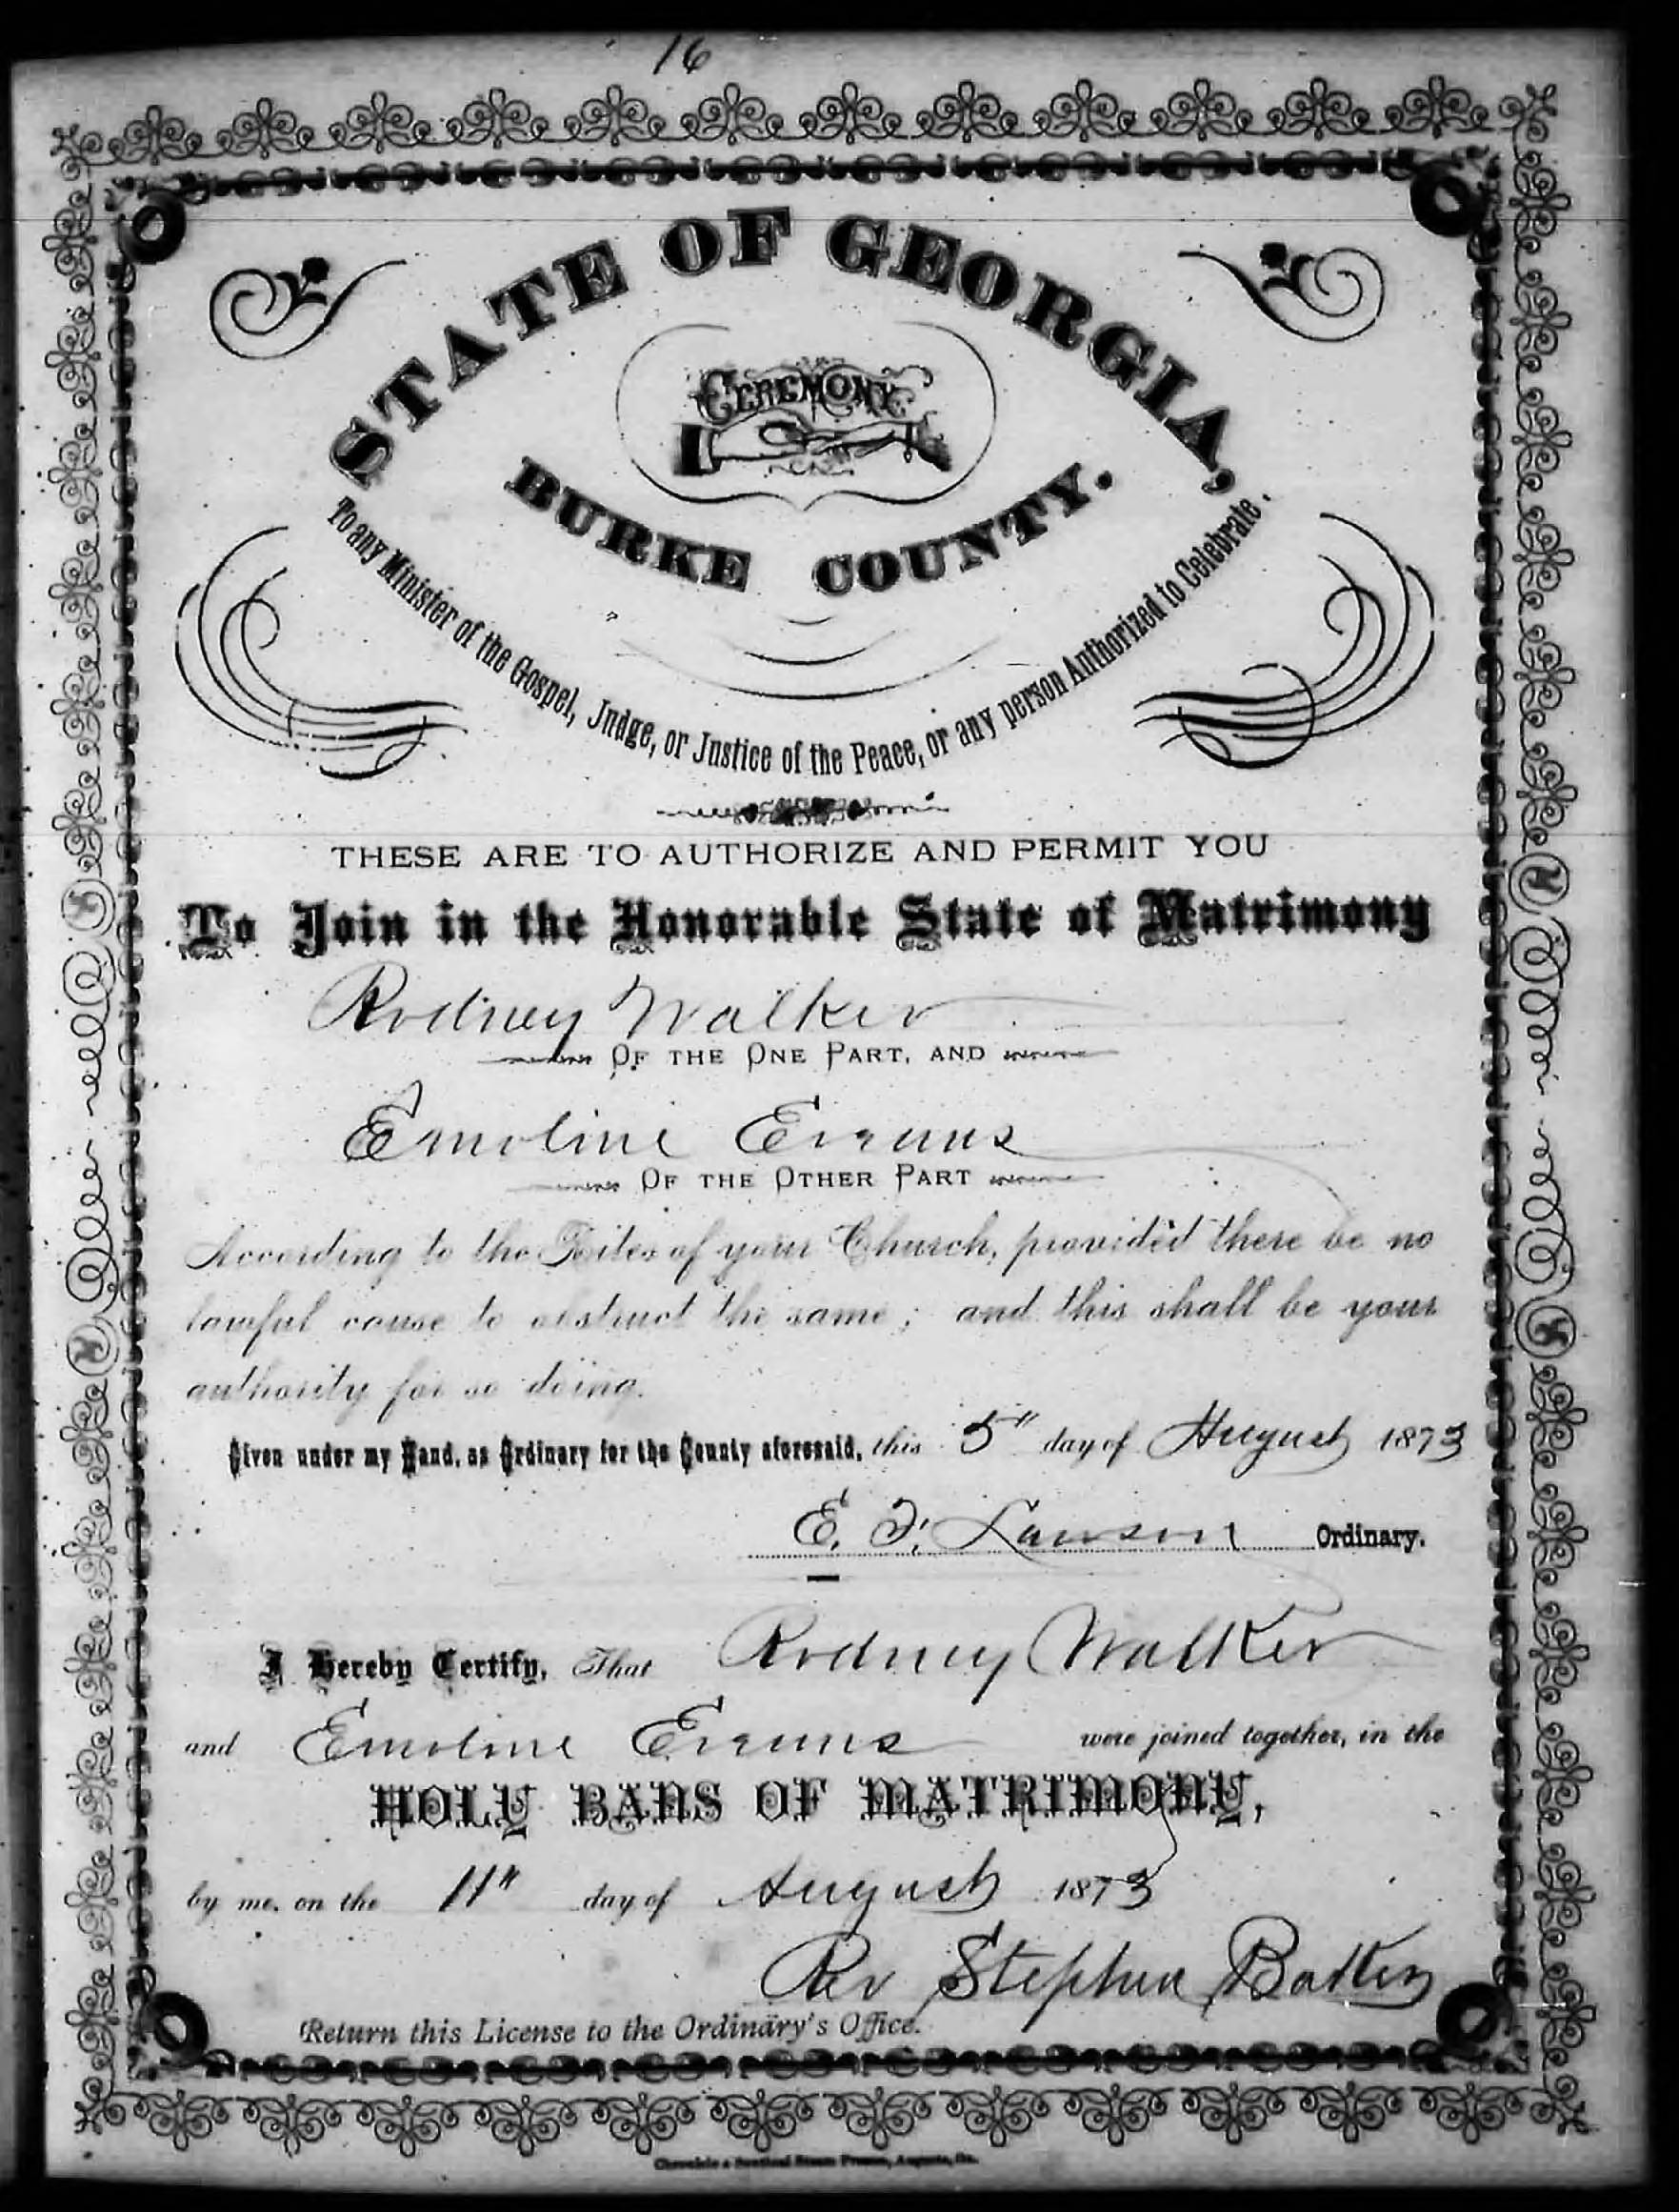 16
STATE OF GEORGIA,
CEREMONY
BURKE COUNTY.
To any Minister of the Gospel, Judge, or Justice of the Peace, or any person Authorized to Celebrate.
THESE ARE TO AUTHORIZE AND PERMIT YOU
To Join in the Honorable State of Matrimony
Rodney Walker
OF THE ONE PART, AND
Emoline Evans
OF THE OTHER PART
According to the Rites of your Church, provided there be no
lawful cause to obstruct the same; and this shall be your
authority for so doing.
Given under my Hand, as Ordinary for the County aforesaid, this 5" day of August 1873
E. F. Lawson Ordinary.
I Hereby Certify, That Rodney Walker
and Emoline Evans were joined together, in the
HOLY BANS OF MATRIMONY,
by me, on the 11" day of August 1873
Rev Stephen
Return this License to the Ordinary's Office.
Chronicle & Sentinel Steam Presses, Augusta, Ga.